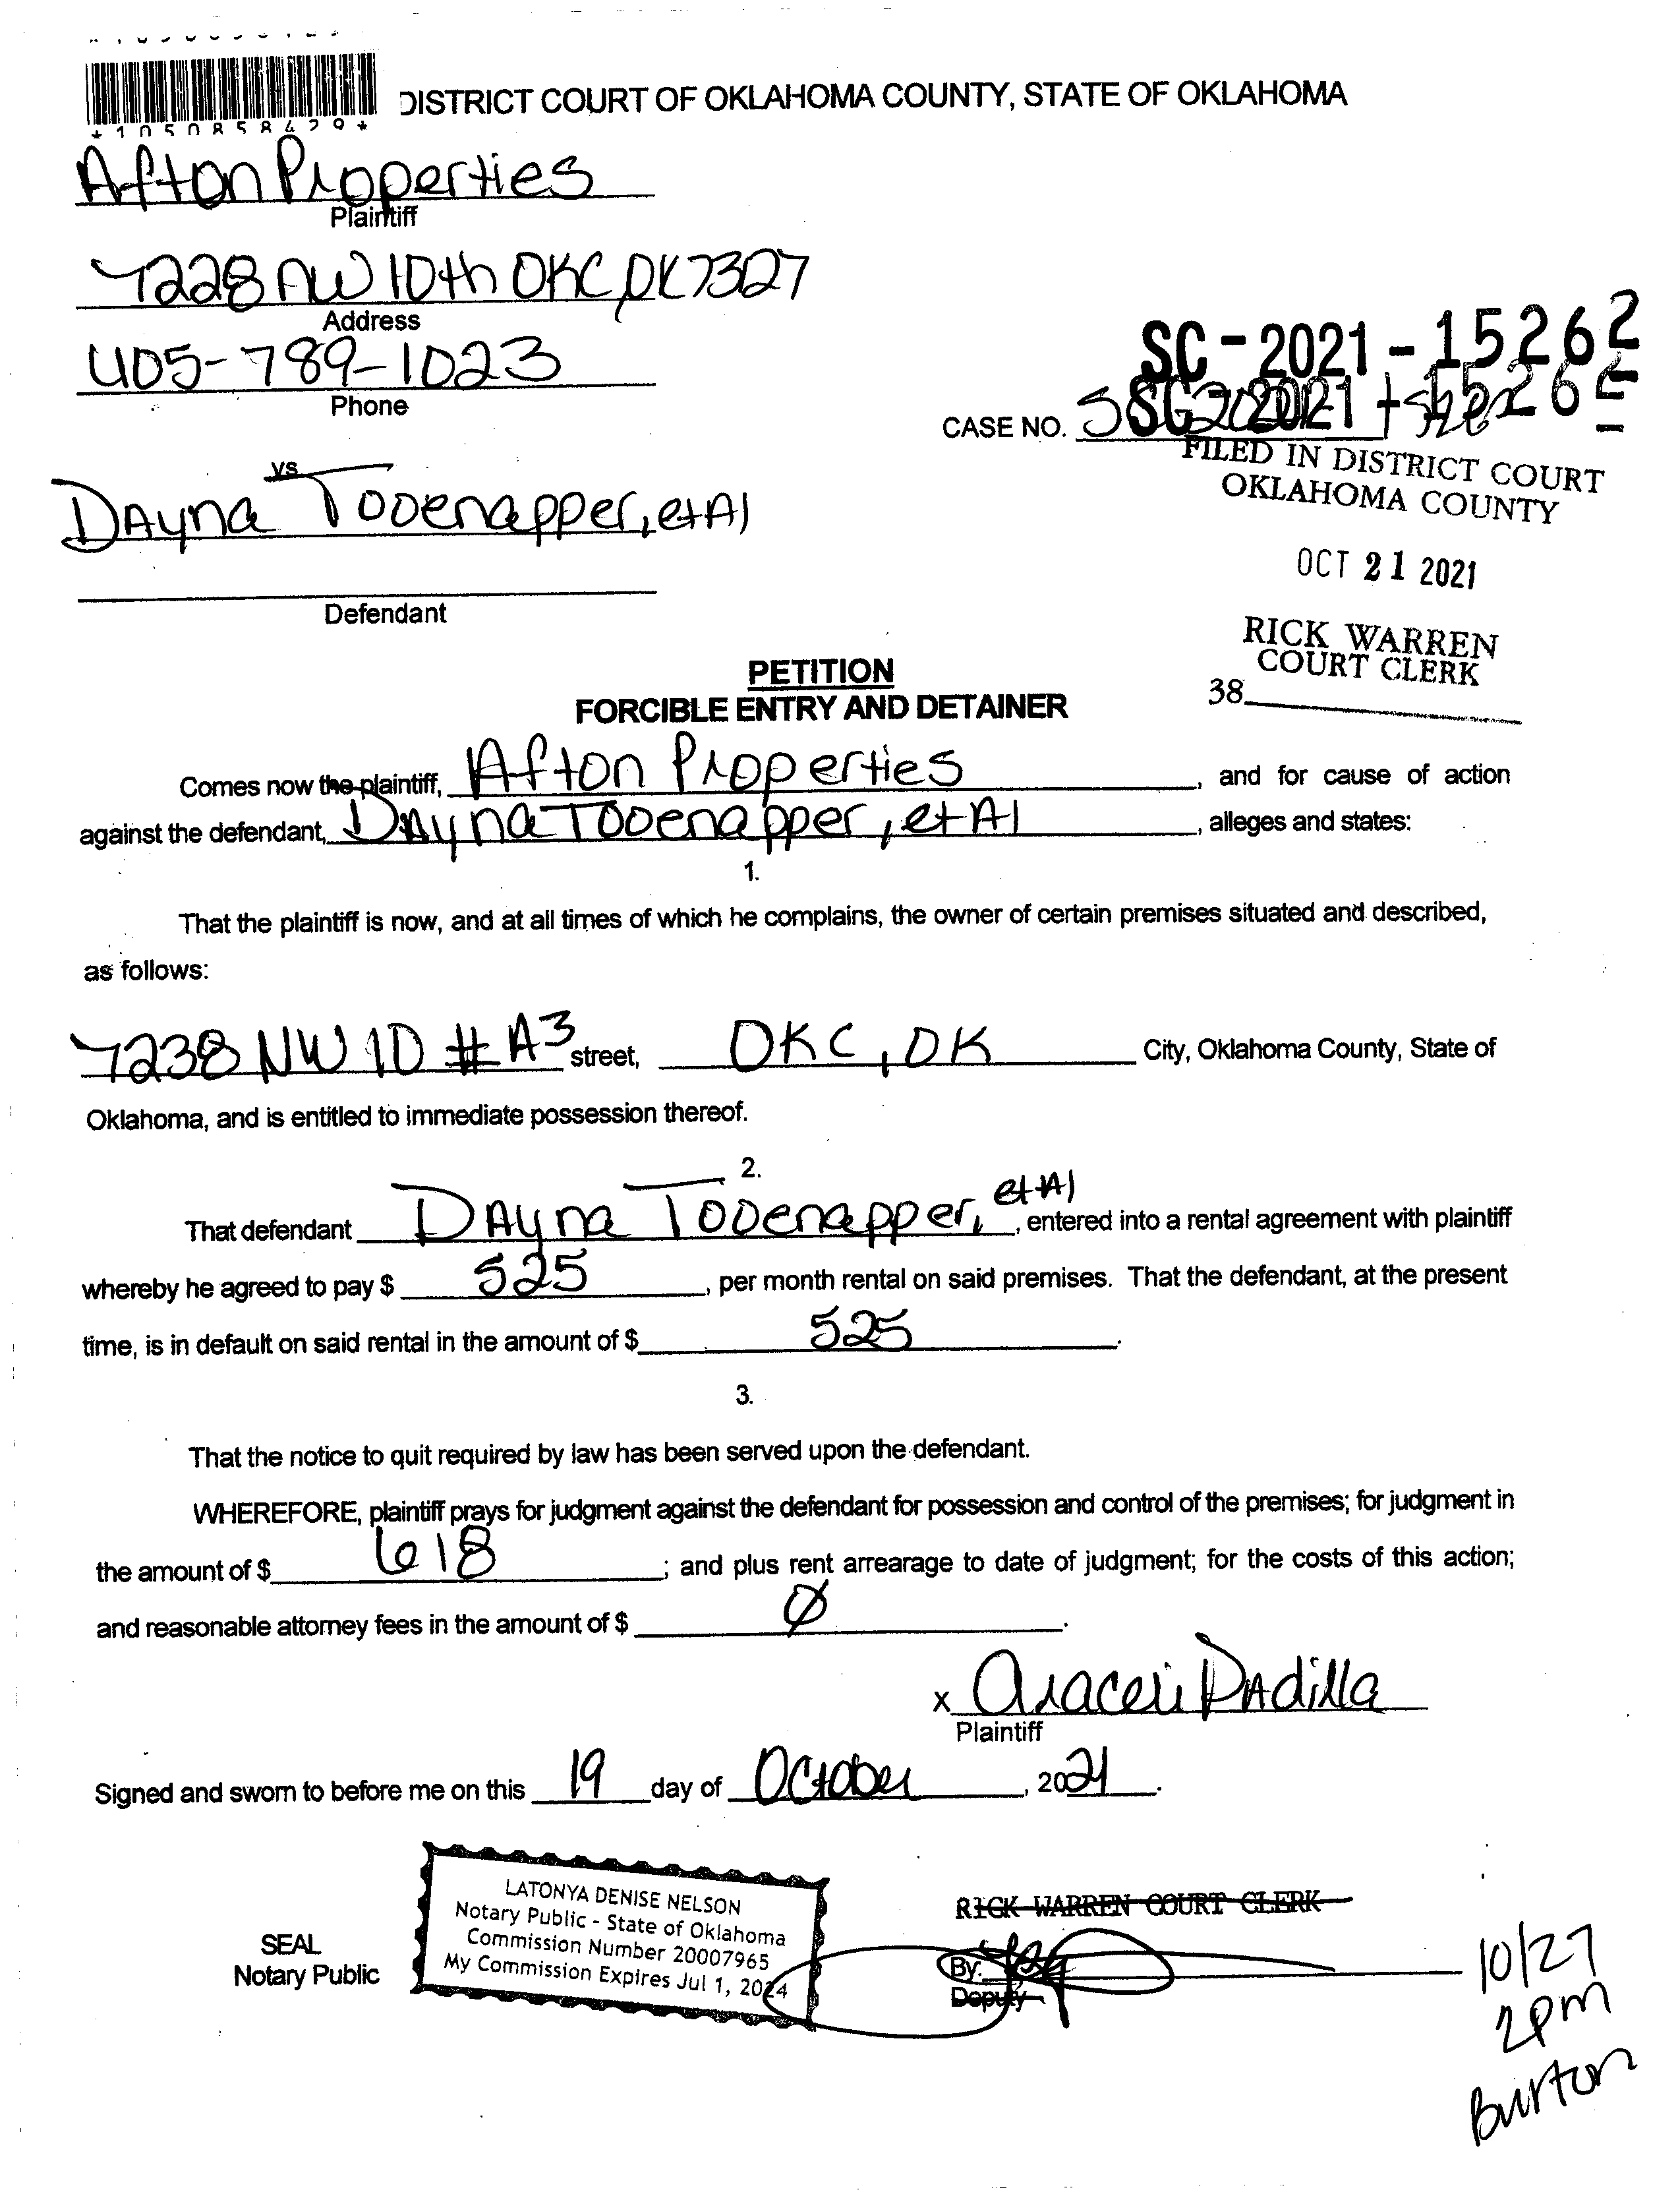 *1050858429*
DISTRICT COURT OF OKLAHOMA COUNTY, STATE OF OKLAHOMA
Afton Properties
Plaintiff
7228 NW 10th OKC, OK 7327
Address
405-789-1023
Phone
SC-2021-15262
CASE NO. SC-2021-15262
FILED IN DISTRICT COURT
OKLAHOMA COUNTY
vs
Dayna Tooenapper, et Al
OCT 21 2021
Defendant
RICK WARREN
COURT CLERK
38
PETITION
FORCIBLE ENTRY AND DETAINER
Comes now the plaintiff, Afton Properties, and for cause of action
against the defendant, Dayna Tooenapper, et Al, alleges and states:
1.
That the plaintiff is now, and at all times of which he complains, the owner of certain premises situated and described,
as follows:
7238 NW 10 # A3 street, OKC, OK City, Oklahoma County, State of
Oklahoma, and is entitled to immediate possession thereof.
2.
That defendant Dayna Tooenapper, et Al, entered into a rental agreement with plaintiff
whereby he agreed to pay $ 525, per month rental on said premises. That the defendant, at the present
time, is in default on said rental in the amount of $ 525.
3.
That the notice to quit required by law has been served upon the defendant.
WHEREFORE, plaintiff prays for judgment against the defendant for possession and control of the premises; for judgment in
the amount of $ 618; and plus rent arrearage to date of judgment; for the costs of this action;
and reasonable attorney fees in the amount of $ Ø.
x Araceli Padilla
Plaintiff
Signed and sworn to before me on this 19 day of October, 2021.
SEAL
Notary Public
LATONYA DENISE NELSON
Notary Public - State of Oklahoma
Commission Number 20007965
My Commission Expires Jul 1, 2024
RICK WARREN COURT CLERK
By:
Deputy
10/27
2pm
Burton